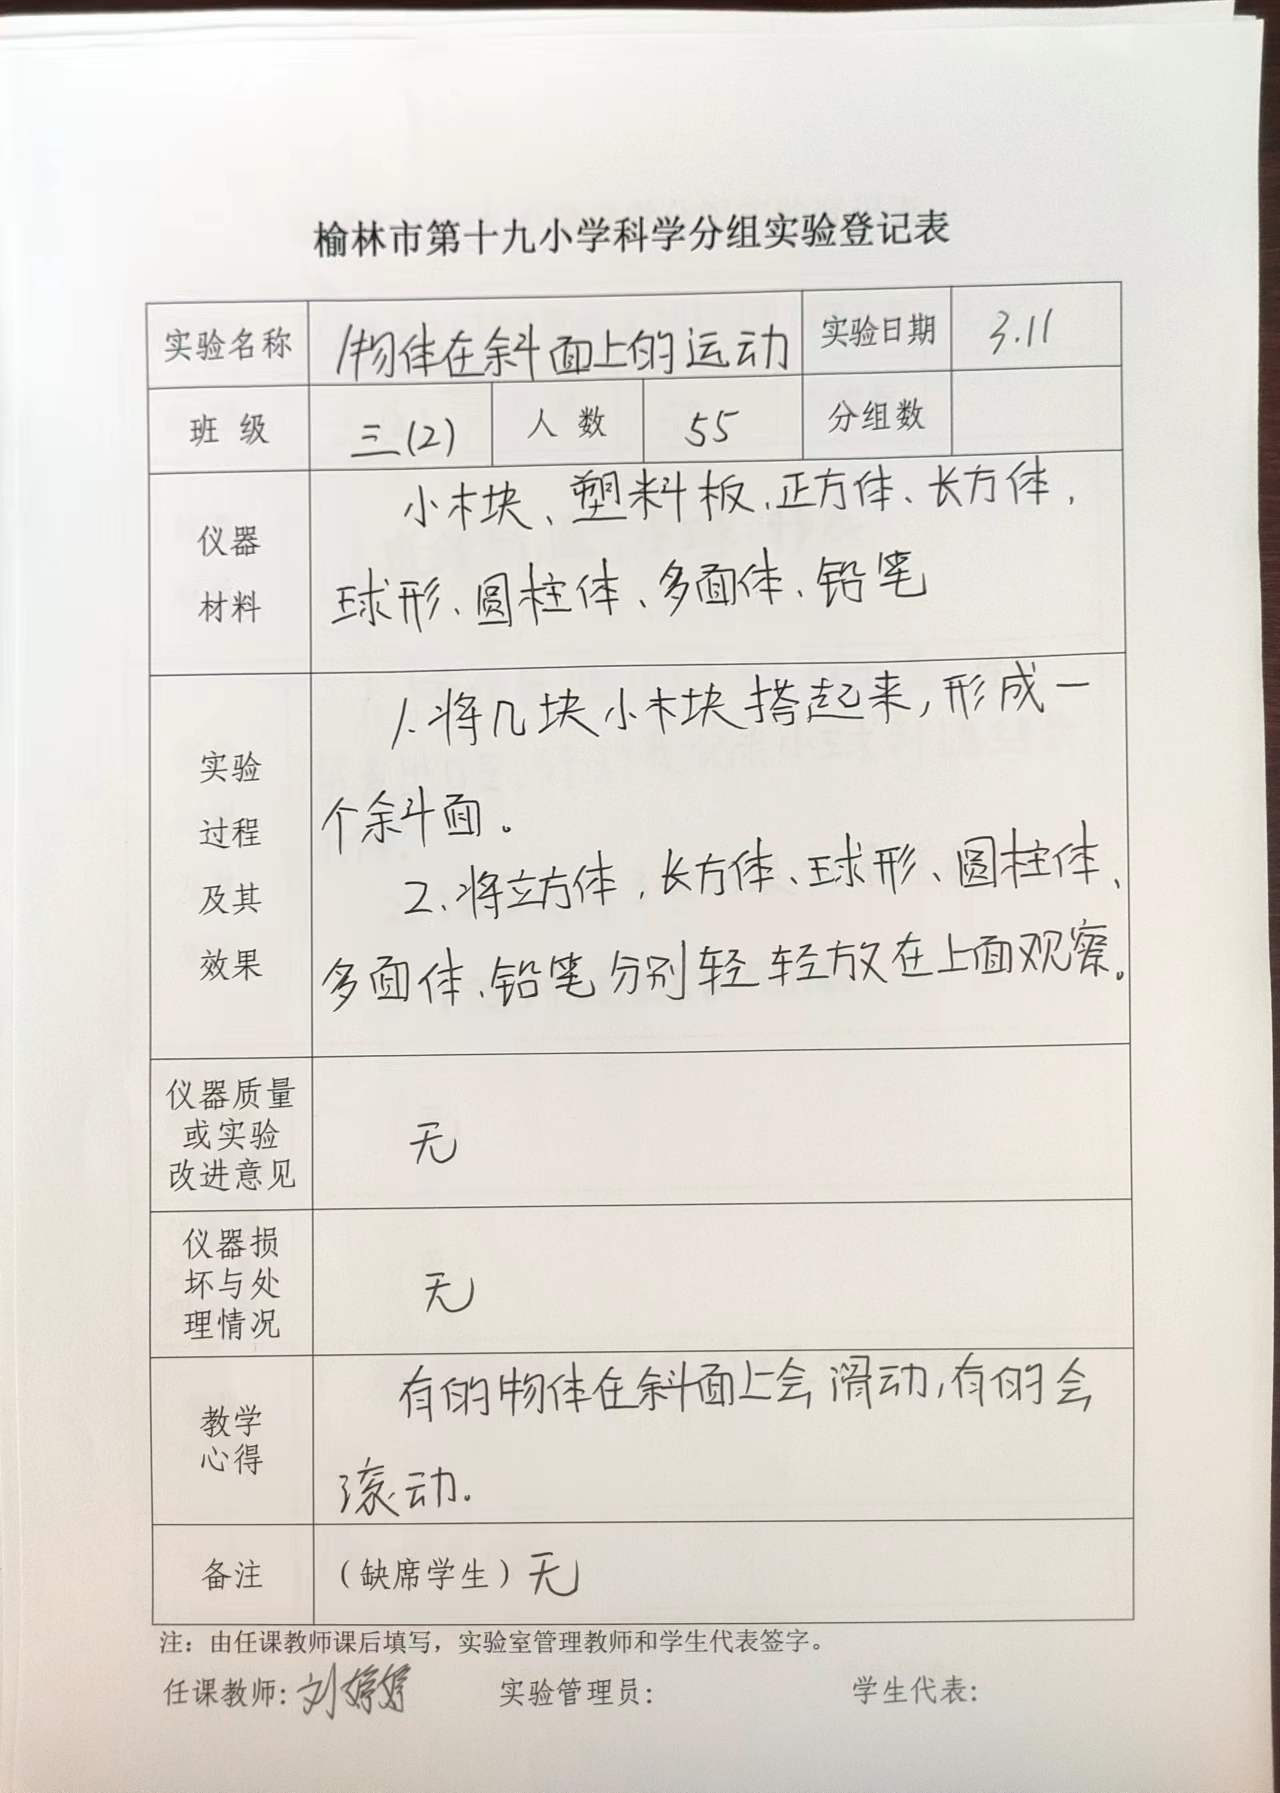 榆林市第十九小学科学分组实验登记表
实验名称 物体在斜面上的运动 实验日期 3.11
班 级 三(2) 人 数 55 分组数
仪器
材料
小木块、塑料板、正方体、长方体、
球形、圆柱体、多面体、铅笔
实验
过程
及其
效果
1.将几块小木块搭起来,形成一
个斜面。
2.将立方体、长方体、球形、圆柱体、
多面体、铅笔分别轻轻放在上面观察。
仪器质量
或实验
改进意见
无
仪器损
坏与处
理情况
无
教学
心得
有的物体在斜面上会滑动,有的会
滚动。
备注 (缺席学生)无
注：由任课教师课后填写，实验室管理教师和学生代表签字。
任课教师:刘婷婷 实验管理员: 学生代表: